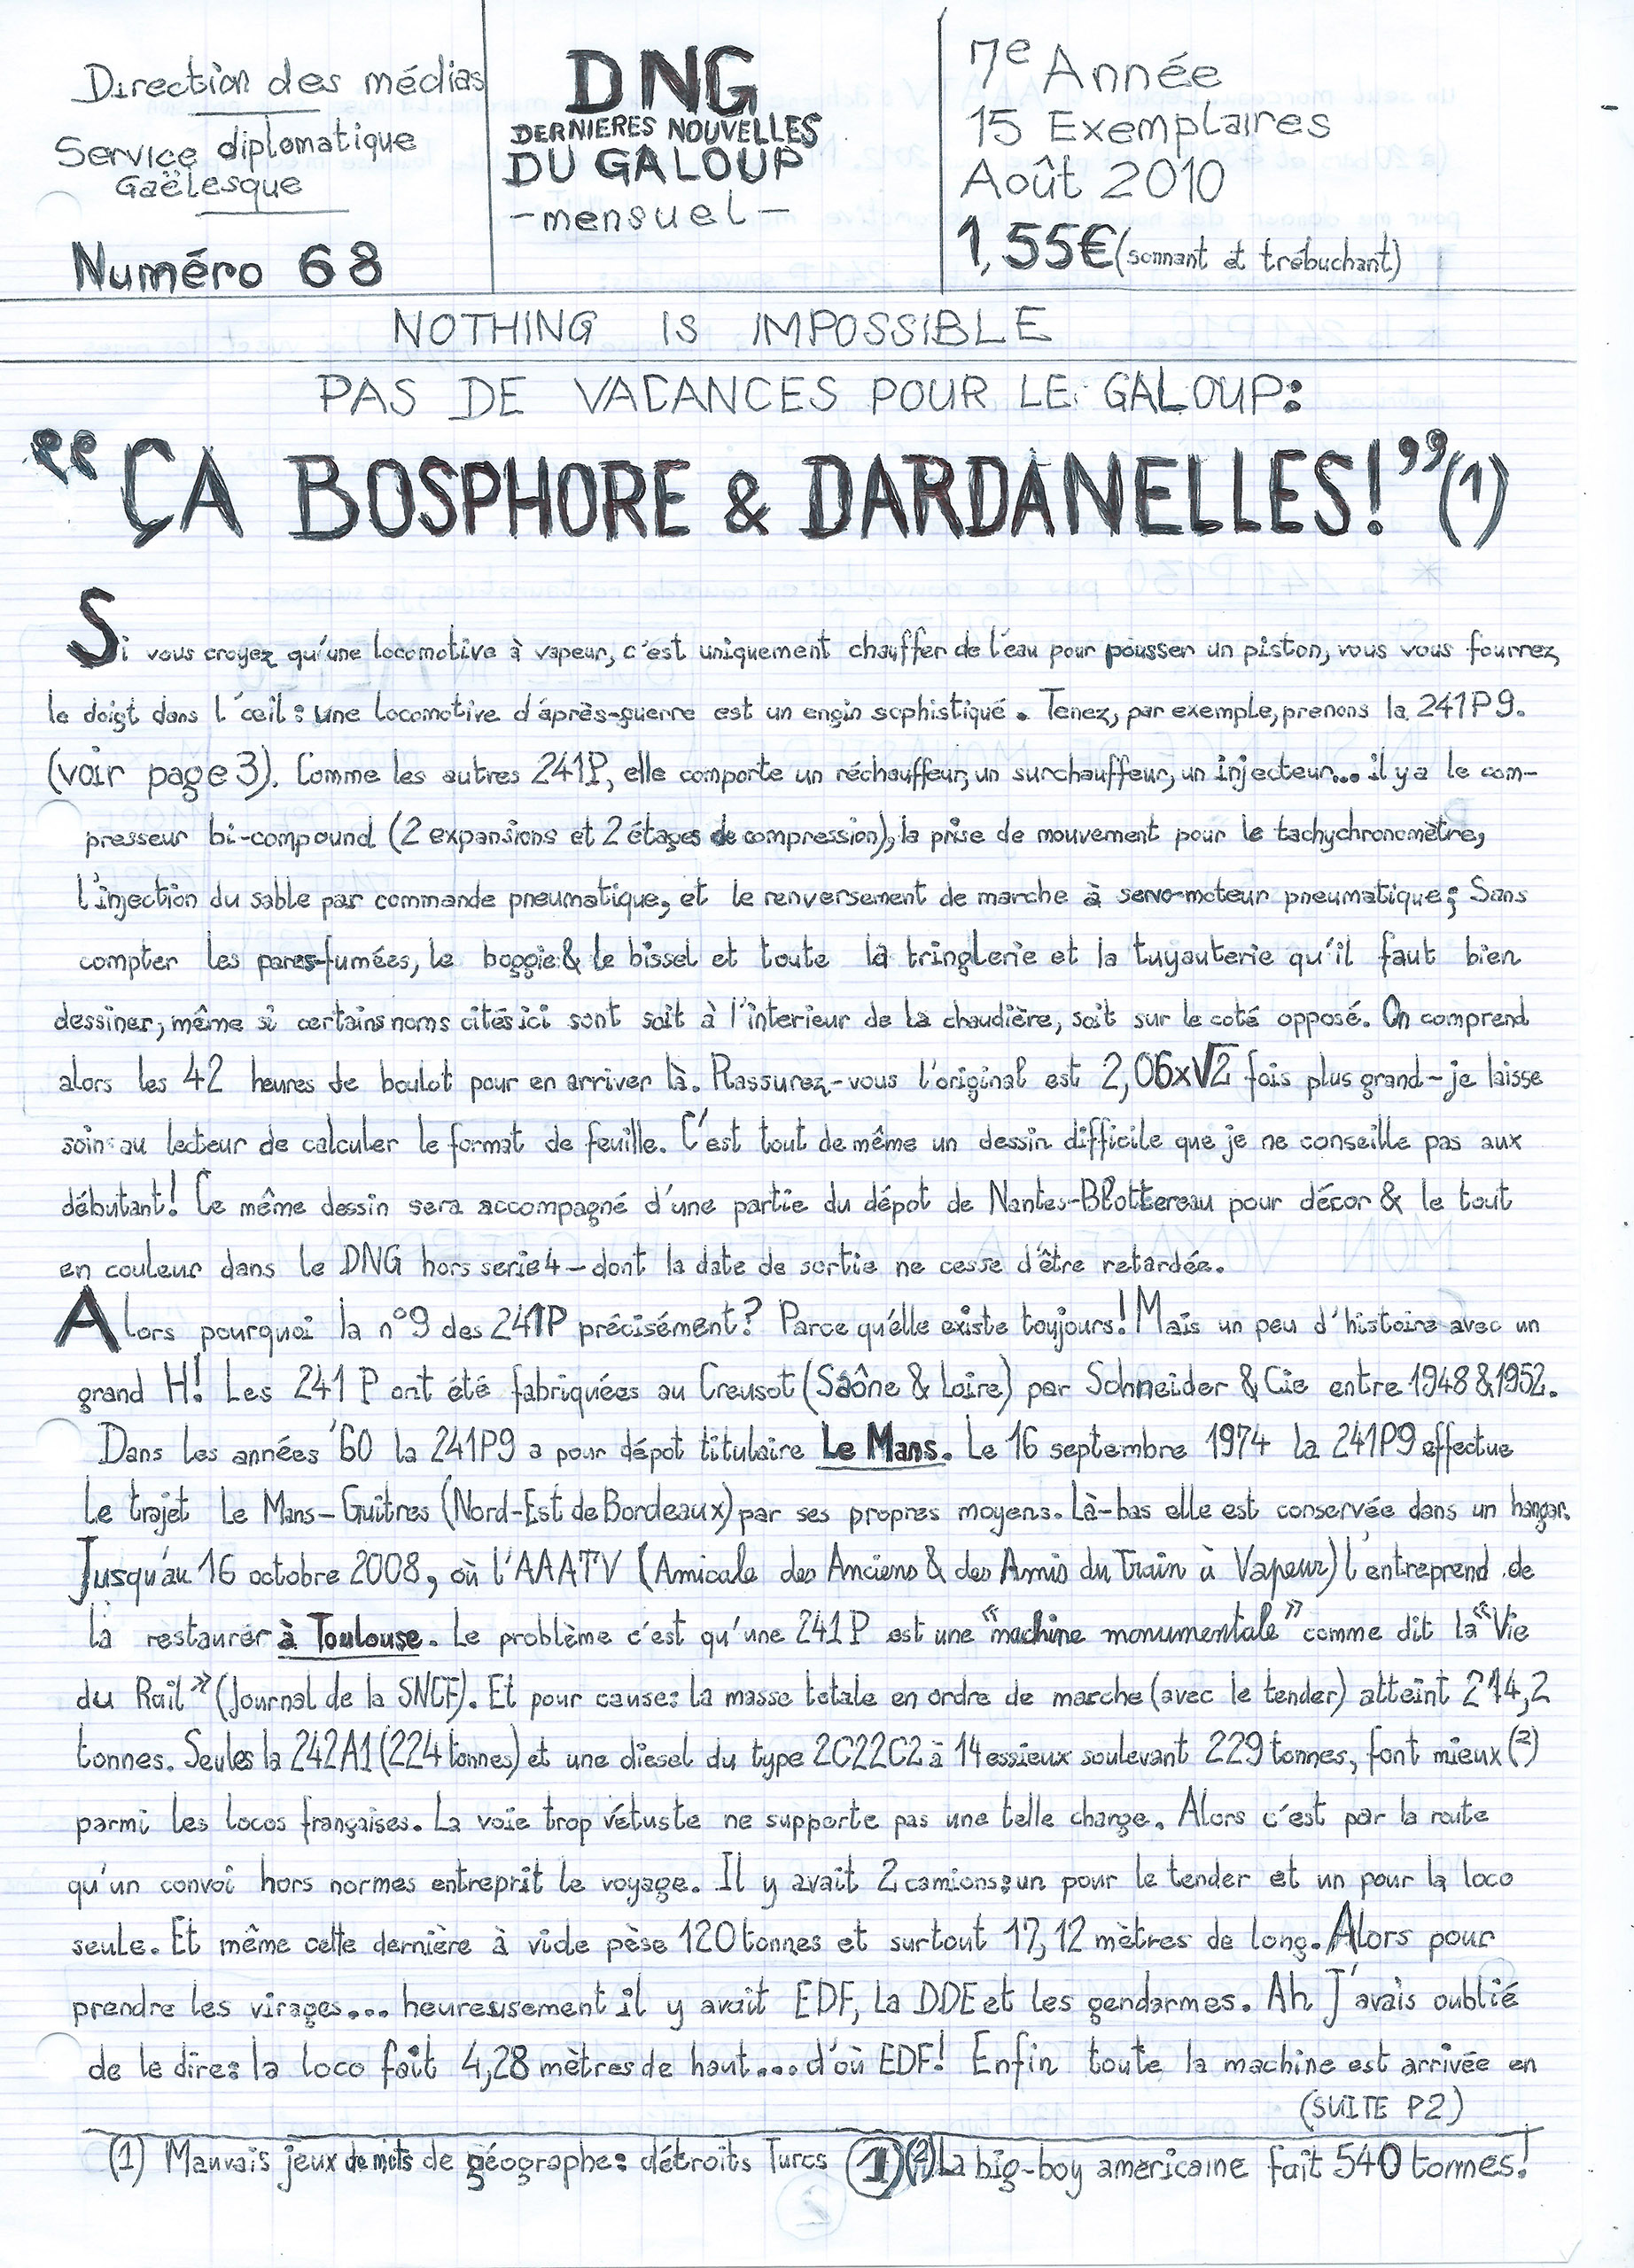 Direction des médias
Service diplomatique
Gaëlesque
Numéro 68
DNG
DERNIERES NOUVELLES
DU GALOUP
-mensuel-
7e Année
15 Exemplaires
Août 2010
1,55€ (sonnant et trébuchant)
NOTHING IS IMPOSSIBLE
PAS DE VACANCES POUR LE GALOUP:
“ÇA BOSPHORE & DARDANELLES!”(1)
Si vous croyez qu'une locomotive à vapeur, c'est uniquement chauffer de l'eau pour pousser un piston, vous vous fourrez
le doigt dans l'œil: une locomotive d'après-guerre est un engin sophistiqué. Tenez, par exemple, prenons la 241P9.
(voir page 3). Comme les autres 241P, elle comporte un réchauffeur, un surchauffeur, un injecteur... il y a le com-
presseur bi-compound (2 expansions et 2 étages de compression), la prise de mouvement pour le tachychronomètre,
l'injection du sable par commande pneumatique, et le renversement de marche à servo-moteur pneumatique; Sans
compter les pares-fumées, le boggie & le bissel et toute la tringlerie et la tuyauterie qu'il faut bien
dessiner, même si certains noms cités ici sont soit à l'interieur de la chaudière, soit sur le coté opposé. On comprend
alors les 42 heures de boulot pour en arriver là. Rassurez-vous l'original est 2,06x√2 fois plus grand - je laisse
soin au lecteur de calculer le format de feuille. C'est tout de même un dessin difficile que je ne conseille pas aux
débutant! Ce même dessin sera accompagné d'une partie du dépot de Nantes-Blottereau pour décor & le tout
en couleur dans le DNG hors serie 4 - dont la date de sortie ne cesse d'être retardée.
Alors pourquoi la n°9 des 241P précisément? Parce qu'elle existe toujours! Mais un peu d'histoire avec un
grand H! Les 241P ont été fabriquées au Creusot (Saône & Loire) par Schneider & Cie entre 1948 & 1952.
Dans les années '60 la 241P9 a pour dépot titulaire Le Mans. Le 16 septembre 1974 la 241P9 effectue
le trajet Le Mans - Guitres (Nord-Est de Bordeaux) par ses propres moyens. Là-bas elle est conservée dans un hangar.
Jusqu'au 16 octobre 2008, où l'AAATV (Amicale des Anciens & des Amis du Train à Vapeur) l'entreprend de
la restaurer à Toulouse. Le problème c'est qu'une 241P est une "machine monumentale" comme dit la "Vie
du Rail" (Journal de la SNCF). Et pour cause: la masse totale en ordre de marche (avec le tender) atteint 214,2
tonnes. Seules la 242A1 (224 tonnes) et une diesel du type 2C22C2 à 14 essieux soulevant 229 tonnes, font mieux (2)
parmi les locos françaises. La voie trop vétuste ne supporte pas une telle charge. Alors c'est par la route
qu'un convoi hors normes entreprit le voyage. Il y avait 2 camions: un pour le tender et un pour la loco
seule. Et même cette dernière à vide pèse 120 tonnes et surtout 17,12 mètres de long. Alors pour
prendre les virages... heureusement il y avait EDF, La DDE et les gendarmes. Ah J'avais oublié
de le dire: la loco fait 4,28 mètres de haut... d'où EDF! Enfin toute la machine est arrivée en
(SUITE P2)
(1) Mauvais jeux de mots de géographe: détroits Turcs
1
(2) La big-boy americaine fait 540 tonnes!